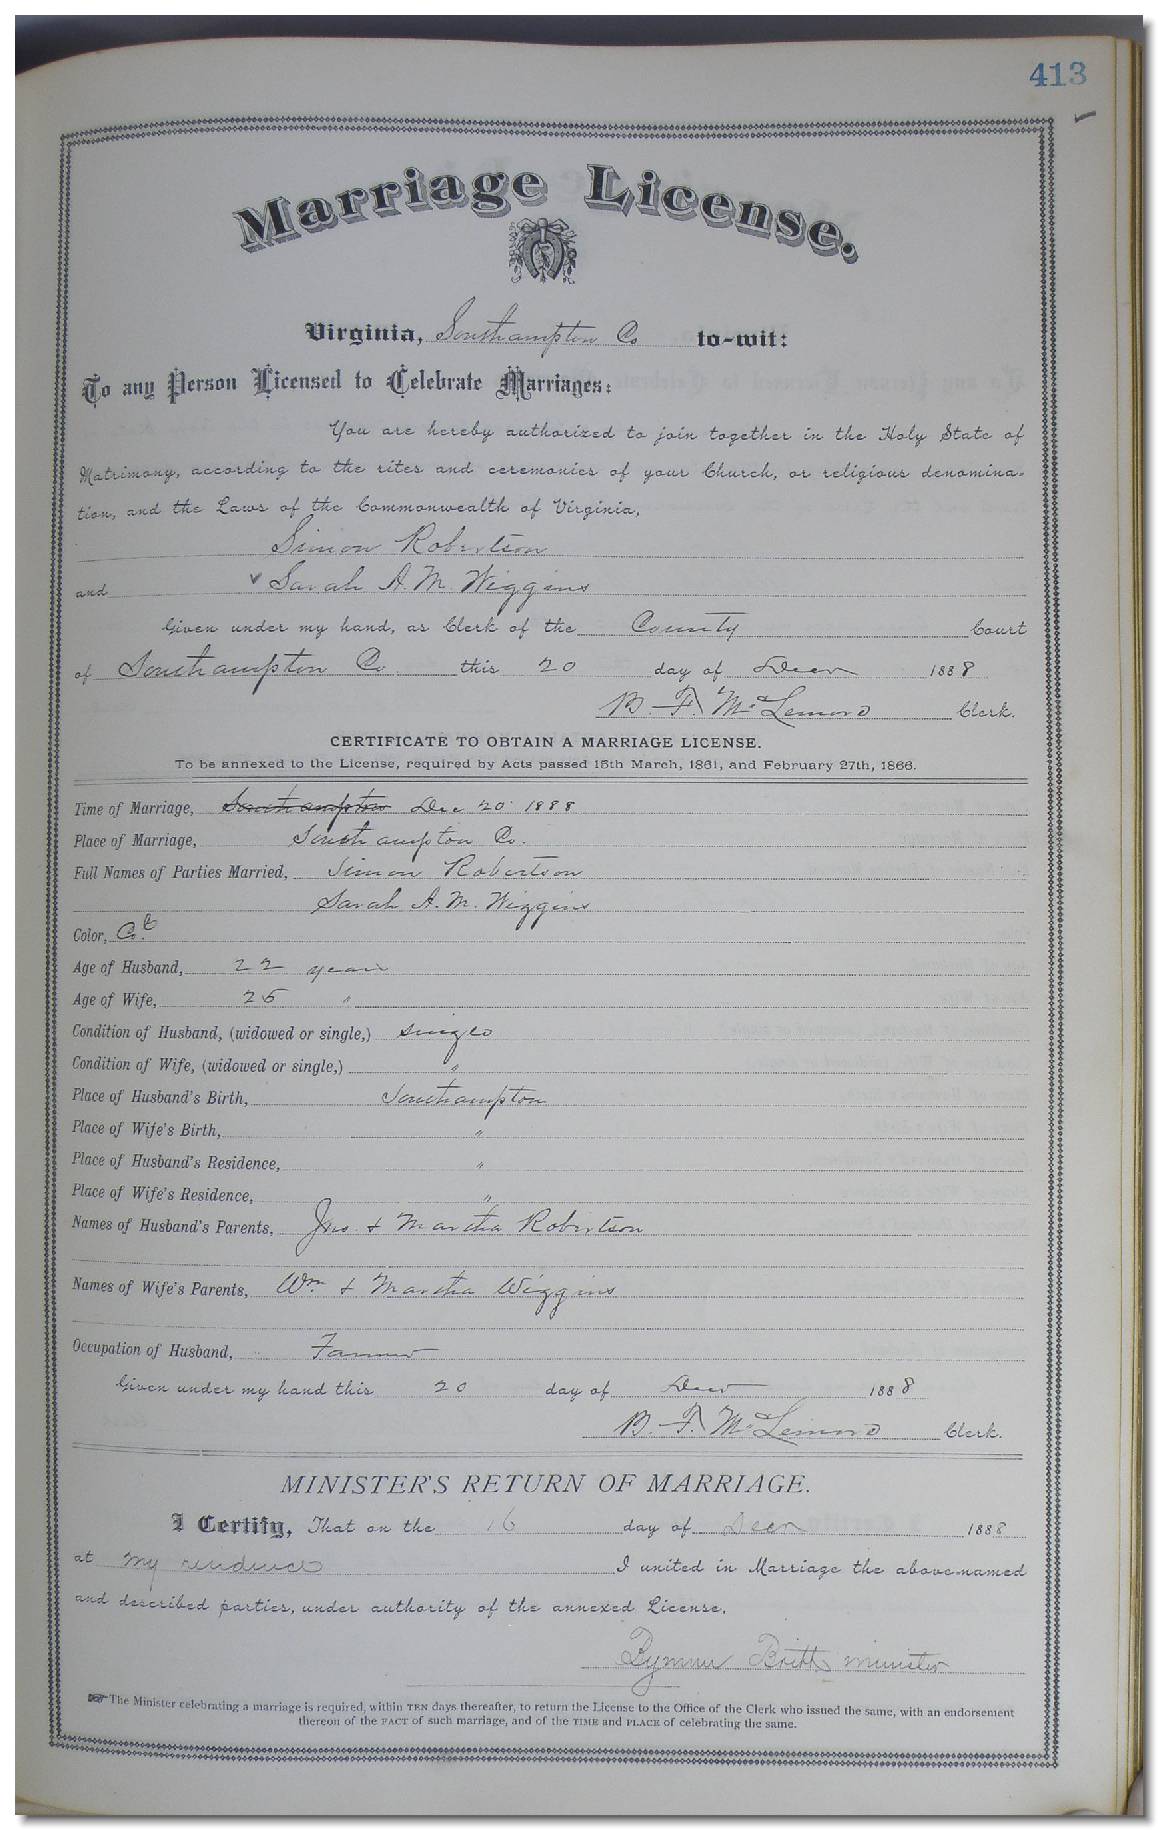 413
Marriage License.
Virginia, Southampton Co to-wit:
To any Person Licensed to Celebrate Marriages:
You are hereby authorized to join together in the Holy State of
Matrimony, according to the rites and ceremonies of your Church, or religious denomina-
tion, and the Laws of the Commonwealth of Virginia,
Simon Robertson
and Sarah A. M. Wiggins
Given under my hand, as Clerk of the County Court
of Southampton Co this 20 day of Decr 1888
B. F. McLemore Clerk.
CERTIFICATE TO OBTAIN A MARRIAGE LICENSE.
To be annexed to the License, required by Acts passed 15th March, 1861, and February 27th, 1866.
Time of Marriage, Southampton Dec 20 1888
Place of Marriage, Southampton Co.
Full Names of Parties Married, Simon Robertson
Sarah A. M. Wiggins
Color, Cold
Age of Husband, 22 years
Age of Wife, 25 "
Condition of Husband, (widowed or single,) single
Condition of Wife, (widowed or single,) "
Place of Husband's Birth, Southampton
Place of Wife's Birth, "
Place of Husband's Residence, "
Place of Wife's Residence, "
Names of Husband's Parents, Jno. & Martha Robertson
Names of Wife's Parents, Wm & Martha Wiggins
Occupation of Husband, Farmer
Given under my hand this 20 day of Decr 1888
B. F. McLemore Clerk.
MINISTER'S RETURN OF MARRIAGE.
I Certify, That on the 16 day of Decr 1888
at my residence I united in Marriage the above-named
and described parties, under authority of the annexed License.
Britt minister
The Minister celebrating a marriage is required, within TEN days thereafter, to return the License to the Office of the Clerk who issued the same, with an endorsement
thereon of the FACT of such marriage, and of the TIME and PLACE of celebrating the same.